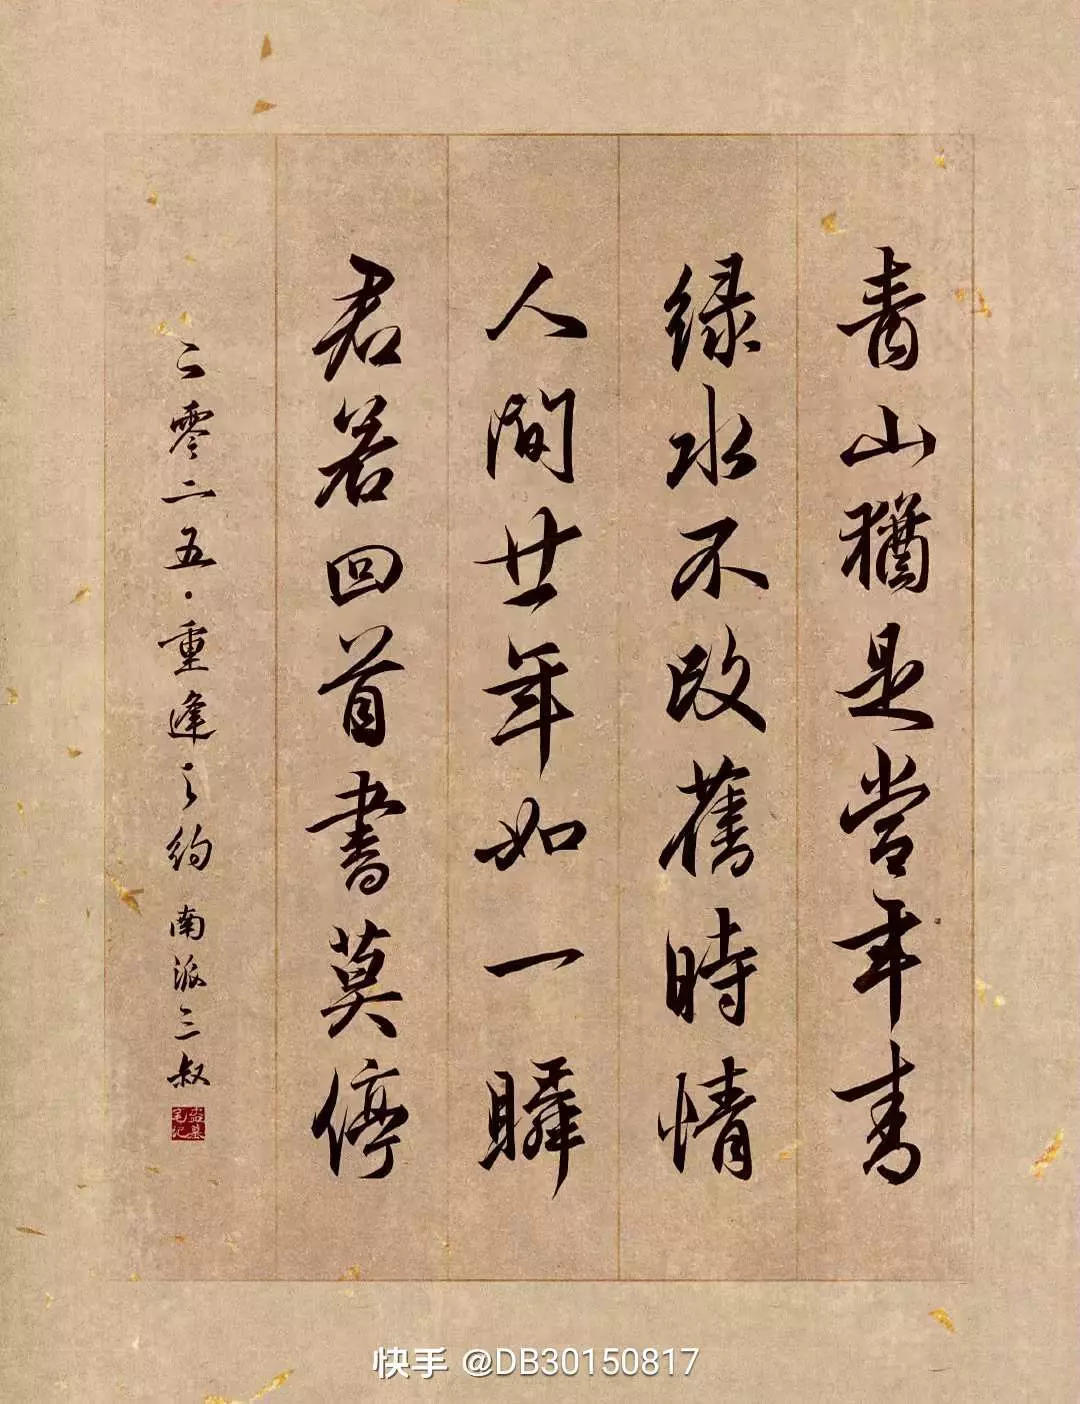 青山猶是當年青
绿水不改舊時情
人間廿年如一瞬
君若回首書莫停
二零二五·重逢之約 南派三叔
快手 @DB30150817